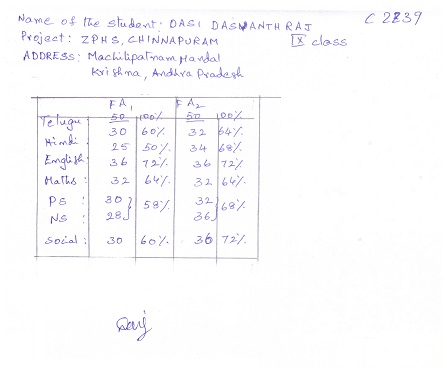 Name of the Student: DASI DASWANTH RAJ C 2839
Project: ZPHS, CHINNAPURAM X class
ADDRESS: Machilipatnam Mandal
Krishna, Andhra Pradesh
FA1 FA2
50 100% 50 100%
Telugu : 30 60% 32 64%
Hindi : 25 50% 34 68%
English : 36 72% 36 72%
Maths : 32 64% 32 64%
PS : 30 58% 32 68%
NS : 28 36
Social : 30 60% 36 72%